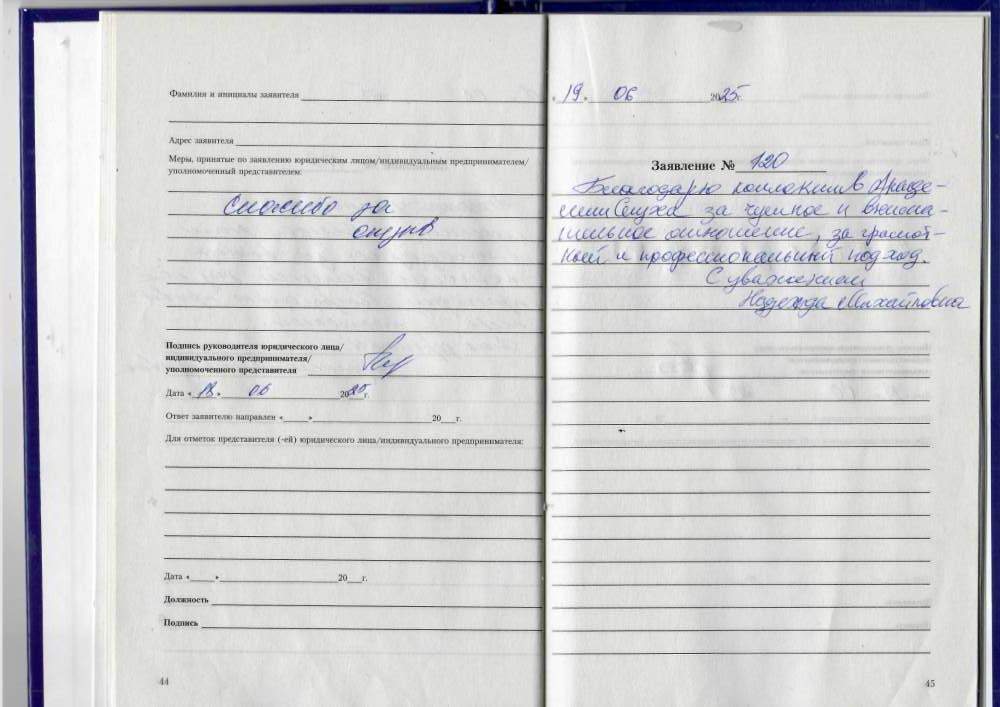 Фамилия и инициалы заявителя
Адрес заявителя
Меры, принятые по заявлению юридическим лицом/индивидуальным предпринимателем/
уполномоченный представителем:
Спасибо за
отзыв
Подпись руководителя юридического лица/
индивидуального предпринимателя/
уполномоченного представителя
Дата « 18 » 06 2025 г.
Ответ заявителю направлен « » 20 г.
Для отметок представителя (-ей) юридического лица/индивидуального предпринимателя:
Дата « » 20 г.
Должность
Подпись
44
« 19 » 06 2025 г.
Заявление № 120
Благодарю коллектив Акаде-
мии Слуха за чуткое и внима-
тельное отношение, за грамот-
ный и профессиональный подход.
С уважением
Надежда Михайловна
45